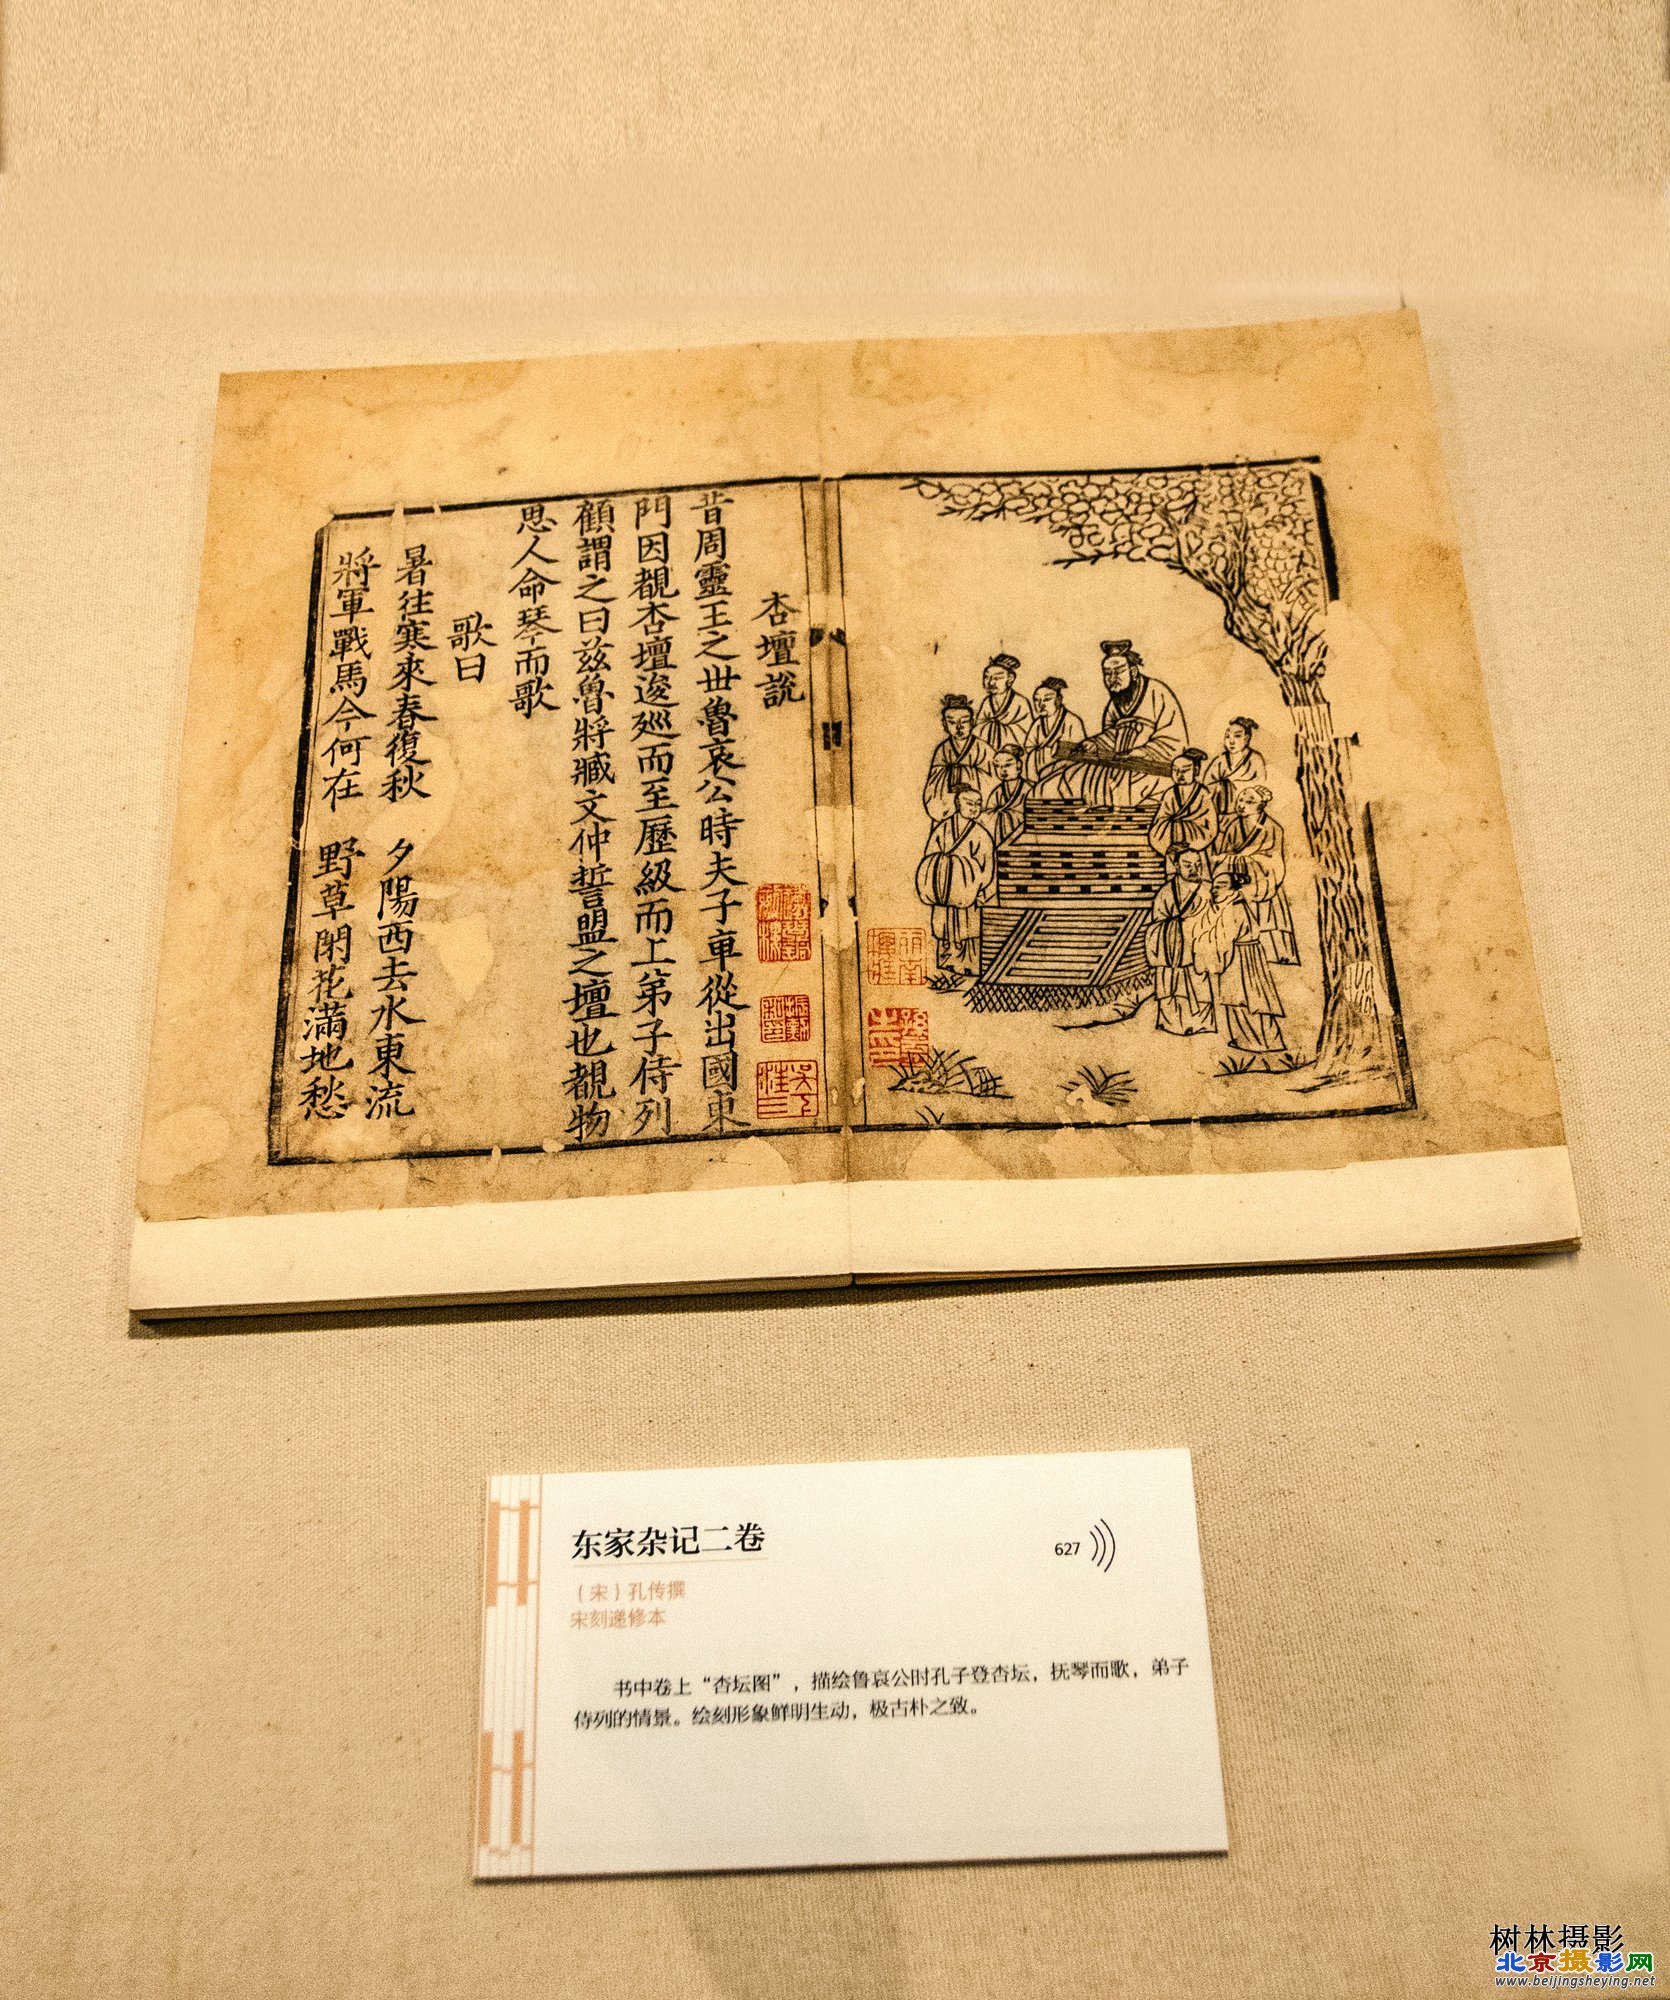 杏壇說
昔周靈王之世魯哀公時夫子車從出國東
門因覩杏壇逡廵而至歷級而上弟子侍列
顧謂之曰兹魯將臧文仲誓盟之壇也覩物
思人命琴而歌
歌曰
暑往寒來春復秋 夕陽西去水東流
將軍戰馬今何在 野草閑花滿地愁
东家杂记二卷
627
（宋）孔传撰
宋刻递修本
书中卷上“杏坛图”，描绘鲁哀公时孔子登杏坛，抚琴而歌，弟子
侍列的情景。绘刻形象鲜明生动，极古朴之致。
树林摄影
北京摄影网
www.beijingsheying.net